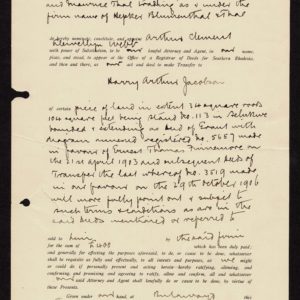 and Maurice Thal trading as & under the
firm name of Hepker Blumenthal & Thal
do hereby nominate, constitute, and appoint Arthur Clement
Llewellyn Webb
with power of Substitution, to be our lawful Attorney and Agent, in our name,
place, and stead, to appear at the Office of the Registrar of Deeds for Southern Rhodesia,
and then and there, as our act and deed to make Transfer to
Harry Arthur Jacobson
of certain piece of land in extent 316 square roods
104 square feet being stand No. 113 in Selukwe
bounded & extending as Deed of Grant with
diagram annexed registered No. 5687 made
in favour of Ernest Thomas Finnemore on
the 21st April 1903 and subsequent deeds of
Transfer the last whereof No. 3519 made
in our favour on the 29th October 1906
will more fully point out & subject to
such terms & conditions as are in the
said deeds mentioned or referred to
sold to him by the said firm
for the sum of £400 which has been duly paid;
and generally for effecting the purposes aforesaid, to do or cause to be done, whatsoever
shall be requisite as fully and effectually, to all intents and purposes, as we might
or could do if personally present and acting herein; hereby ratifying, allowing, and
confirming, and promising and agreeing to ratify, allow and confirm all and whatsoever
our said Attorney and Agent shall lawfully do or cause to be done, by virtue of
these Presents.
Given under our hand at Bulawayo this